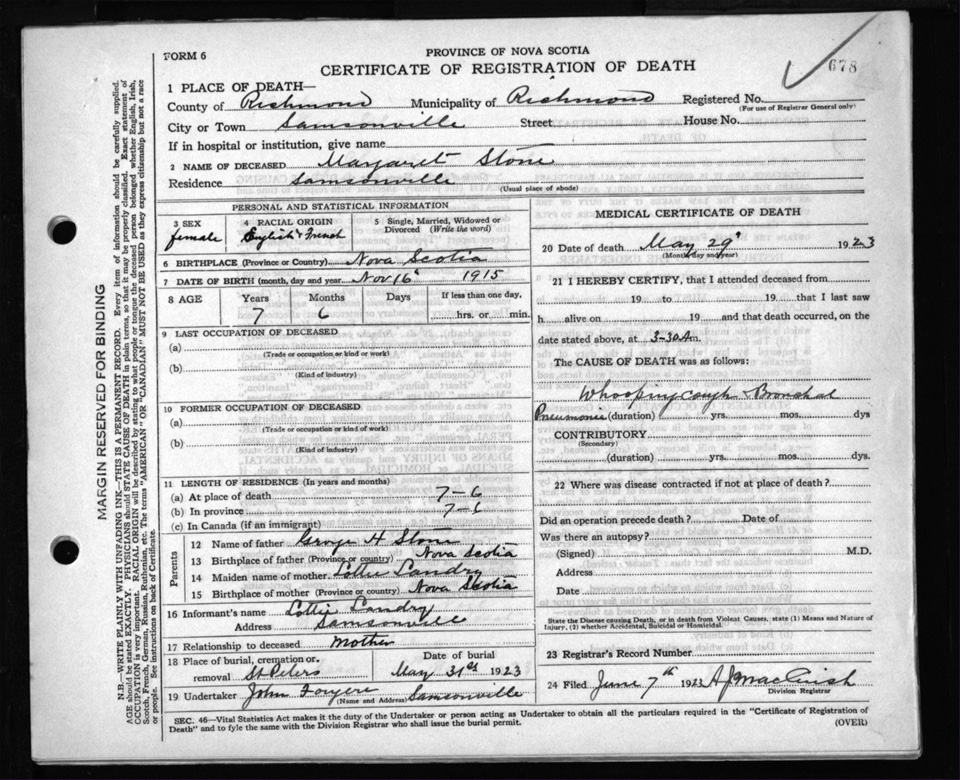 FORM 6
PROVINCE OF NOVA SCOTIA
CERTIFICATE OF REGISTRATION OF DEATH
678
1 PLACE OF DEATH—
County of Richmond Municipality of Richmond Registered No.
(For use of Registrar General only)
City or Town Samsonville Street House No.
If in hospital or institution, give name
2 NAME OF DECEASED Margaret Stone
Residence Samsonville
(Usual place of abode)
PERSONAL AND STATISTICAL INFORMATION
3 SEX female
4 RACIAL ORIGIN English & French
5 Single, Married, Widowed or Divorced (Write the word)
6 BIRTHPLACE (Province or Country) Nova Scotia
7 DATE OF BIRTH (month, day and year) Nov 16 1915
8 AGE Years Months Days If less than one day,
7 6 hrs. or min.
9 LAST OCCUPATION OF DECEASED
(a)
(Trade or occupation or kind or work)
(b)
(Kind of industry)
10 FORMER OCCUPATION OF DECEASED
(a)
(Trade or occupation or kind of work)
(b)
(Kind of industry)
11 LENGTH OF RESIDENCE (In years and months)
(a) At place of death 7-6
(b) In province 7-6
(c) In Canada (if an immigrant)
Parents
12 Name of father George H Stone
13 Birthplace of father (Province or country) Nova Scotia
14 Maiden name of mother Lottie Landry
15 Birthplace of mother (Province or country) Nova Scotia
16 Informant's name Lottie Landry
Address Samsonville
17 Relationship to deceased mother
18 Place of burial, cremation or removal St Peters
Date of burial May 31st 1923
19 Undertaker John Fougere Samsonville
(Name and Address)
MEDICAL CERTIFICATE OF DEATH
20 Date of death May 29 1923
(Month, day and year)
21 I HEREBY CERTIFY, that I attended deceased from
19 to 19 that I last saw
h alive on 19 and that death occurred, on
date stated above, at 3-30 Am.
The CAUSE OF DEATH was as follows:
Whooping cough Bronchal
Pneumonia (duration) yrs. mos. dys
CONTRIBUTORY
(Secondary)
(duration) yrs. mos. dys.
22 Where was disease contracted if not at place of death?
Did an operation precede death? Date of
Was there an autopsy?
(Signed) M.D.
Address
Date
State the Disease causing Death, or in death from Violent Causes, state (1) Means and Nature of
Injury, (2) whether Accidental, Suicidal or Homicidal.
23 Registrar's Record Number
24 Filed June 7th 1923 A J MacCuish
Division Registrar
SEC. 46—Vital Statistics Act makes it the duty of the Undertaker or person acting as Undertaker to obtain all the particulars required in the "Certificate of Registration of
Death" and to fyle the same with the Division Registrar who shall issue the burial permit.
(OVER)
MARGIN RESERVED FOR BINDING
N.B.—WRITE PLAINLY WITH UNFADING INK—THIS IS A PERMANENT RECORD. Every item of information should be carefully supplied.
AGE should be stated EXACTLY. PHYSICIANS should STATE CAUSE OF DEATH in plain terms, so that it may be properly classified. Exact statement of
OCCUPATION is very important. RACIAL ORIGIN will be described by stating to what people or tongue the deceased person belonged whether English, Irish,
Scotch, French, German, Russian, Ruthenian, etc. The terms "AMERICAN" or "CANADIAN" MUST NOT BE USED as they express citizenship but not a race
or people. See instructions on back of Certificate.